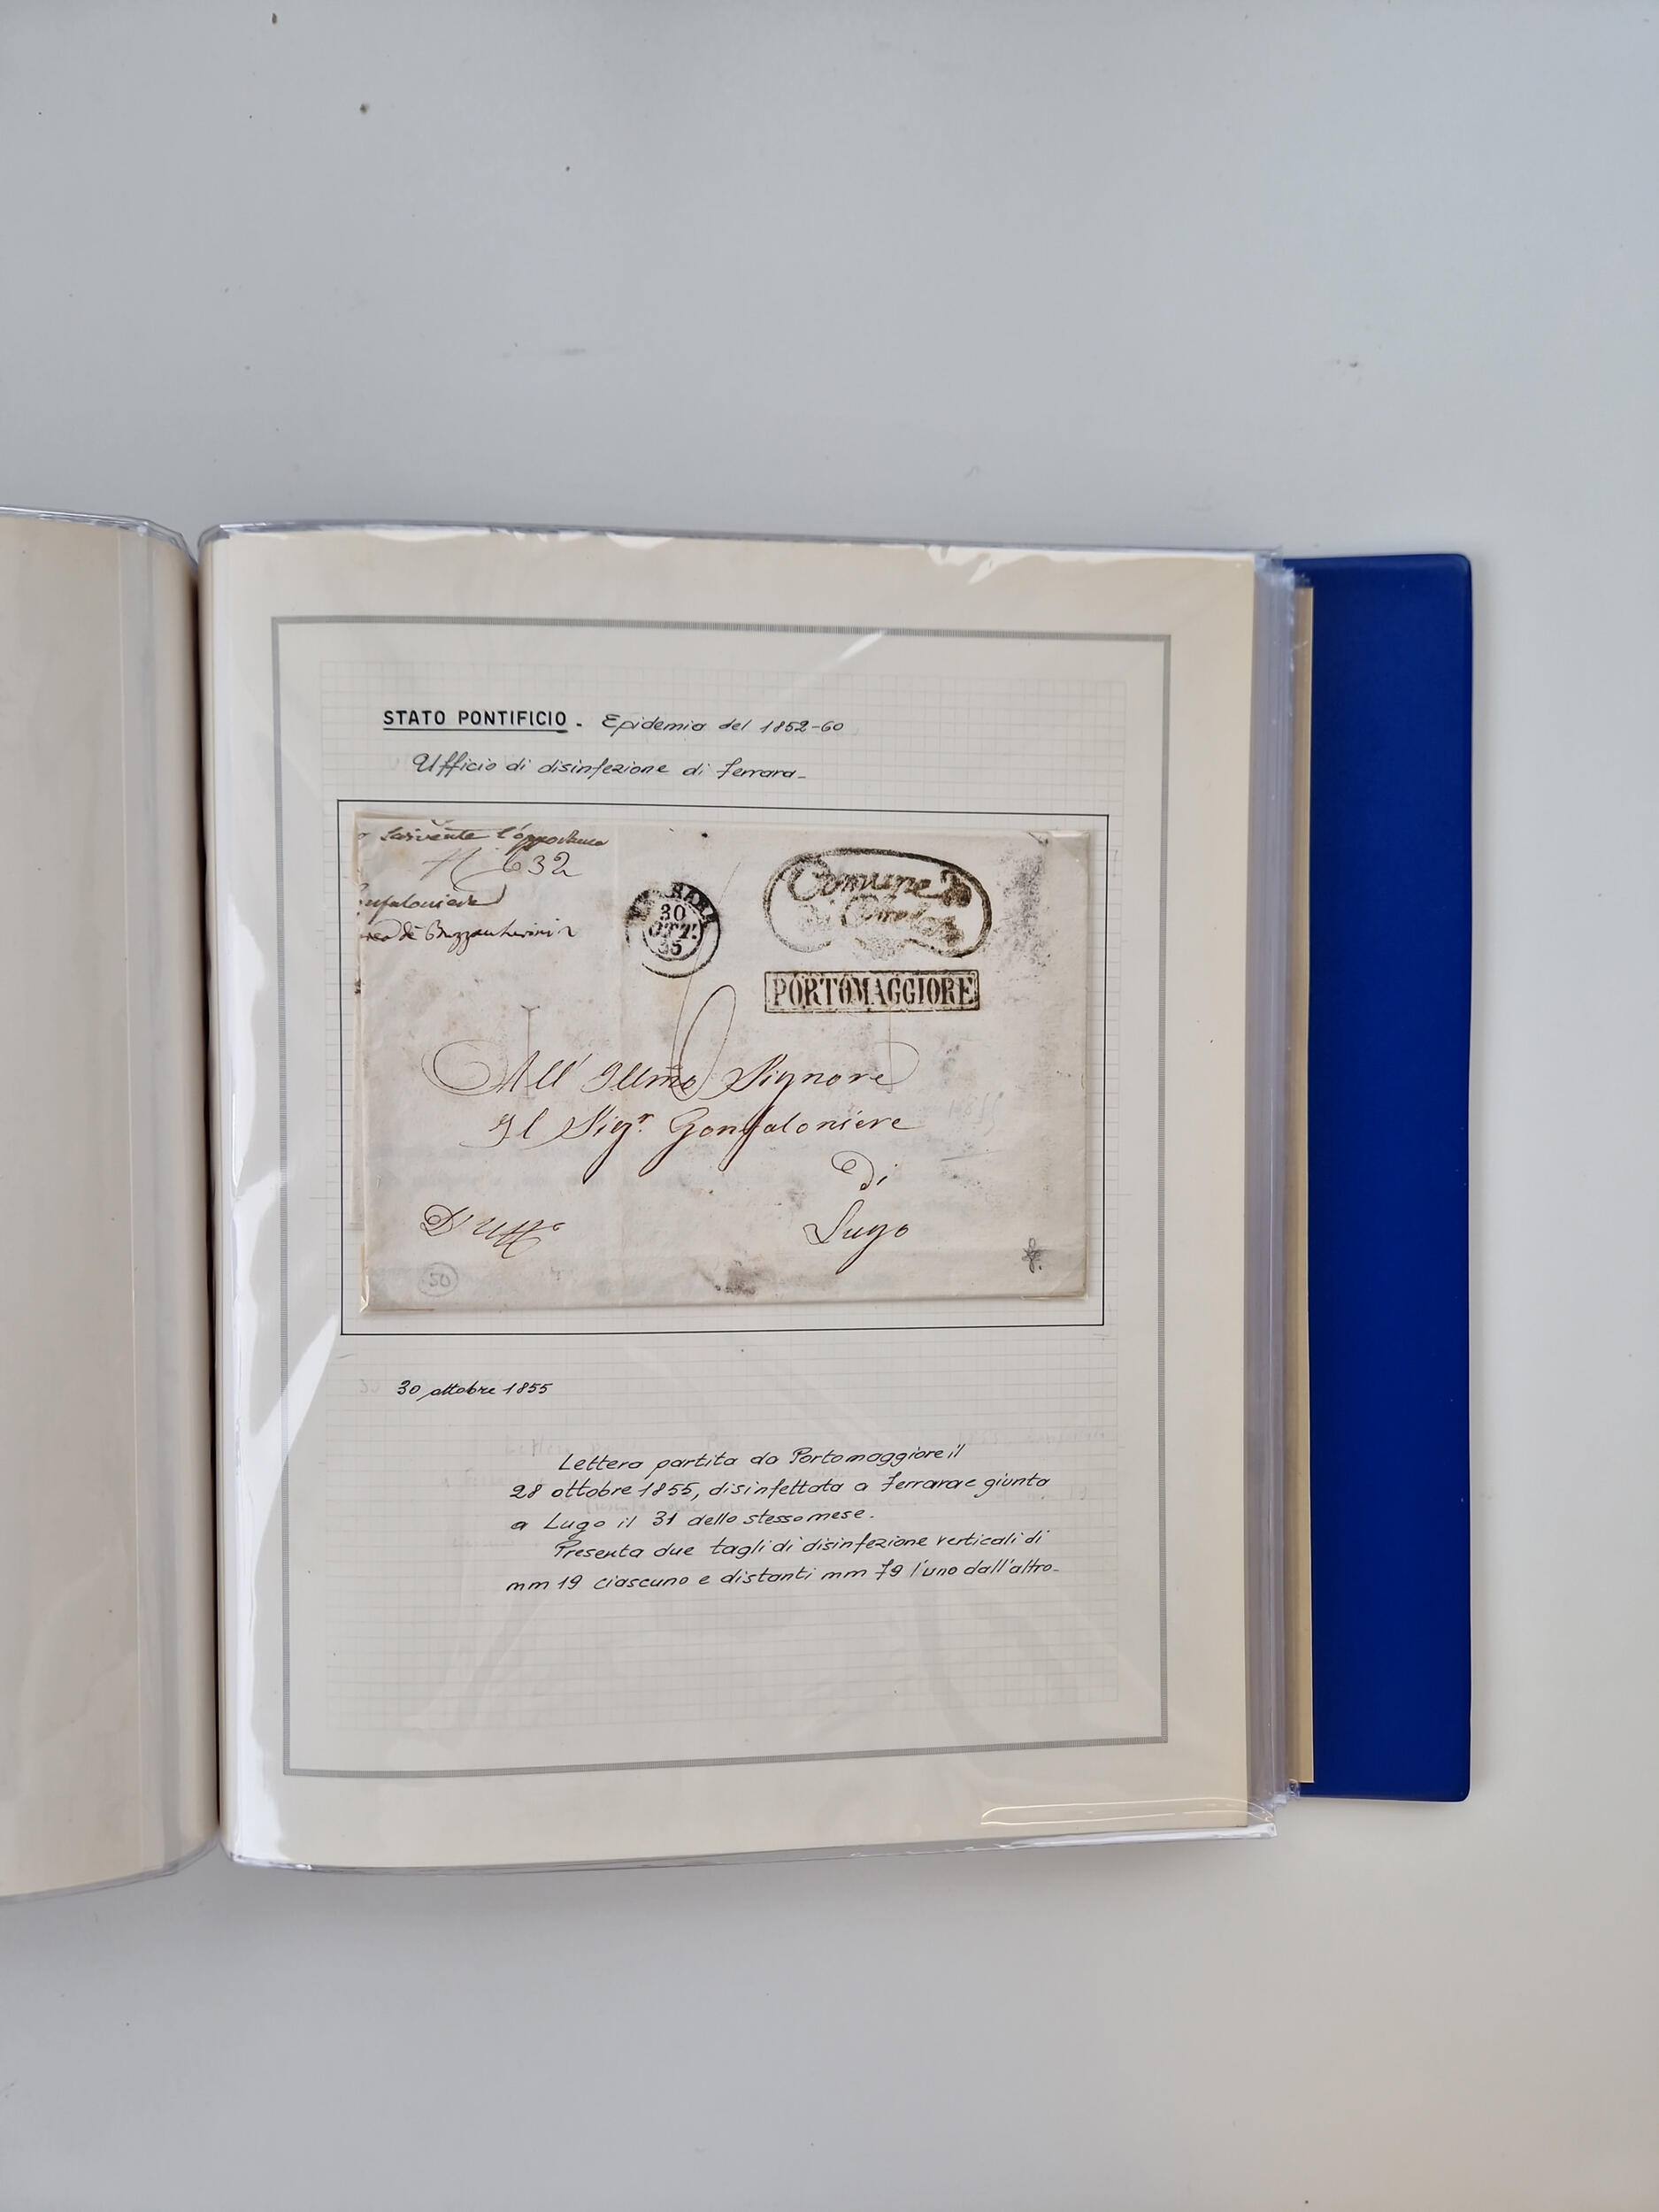 STATO PONTIFICIO - Epidemia del 1852-60
Ufficio di disinfezione di Ferrara-
632
FERRARA
30
OTT.
55
Comune
di
PORTOMAGGIORE
All' Illmo Signore
Il Sigr. Gonfaloniere
Di
Lugo
D'Uffo
50
30 ottobre 1855
Lettera partita da Portomaggiore il
28 ottobre 1855, disinfettata a Ferrara e giunta
a Lugo il 31 dello stesso mese.
Presenta due tagli di disinfezione verticali di
mm 19 ciascuno e distanti mm 79 l'uno dall'altro-